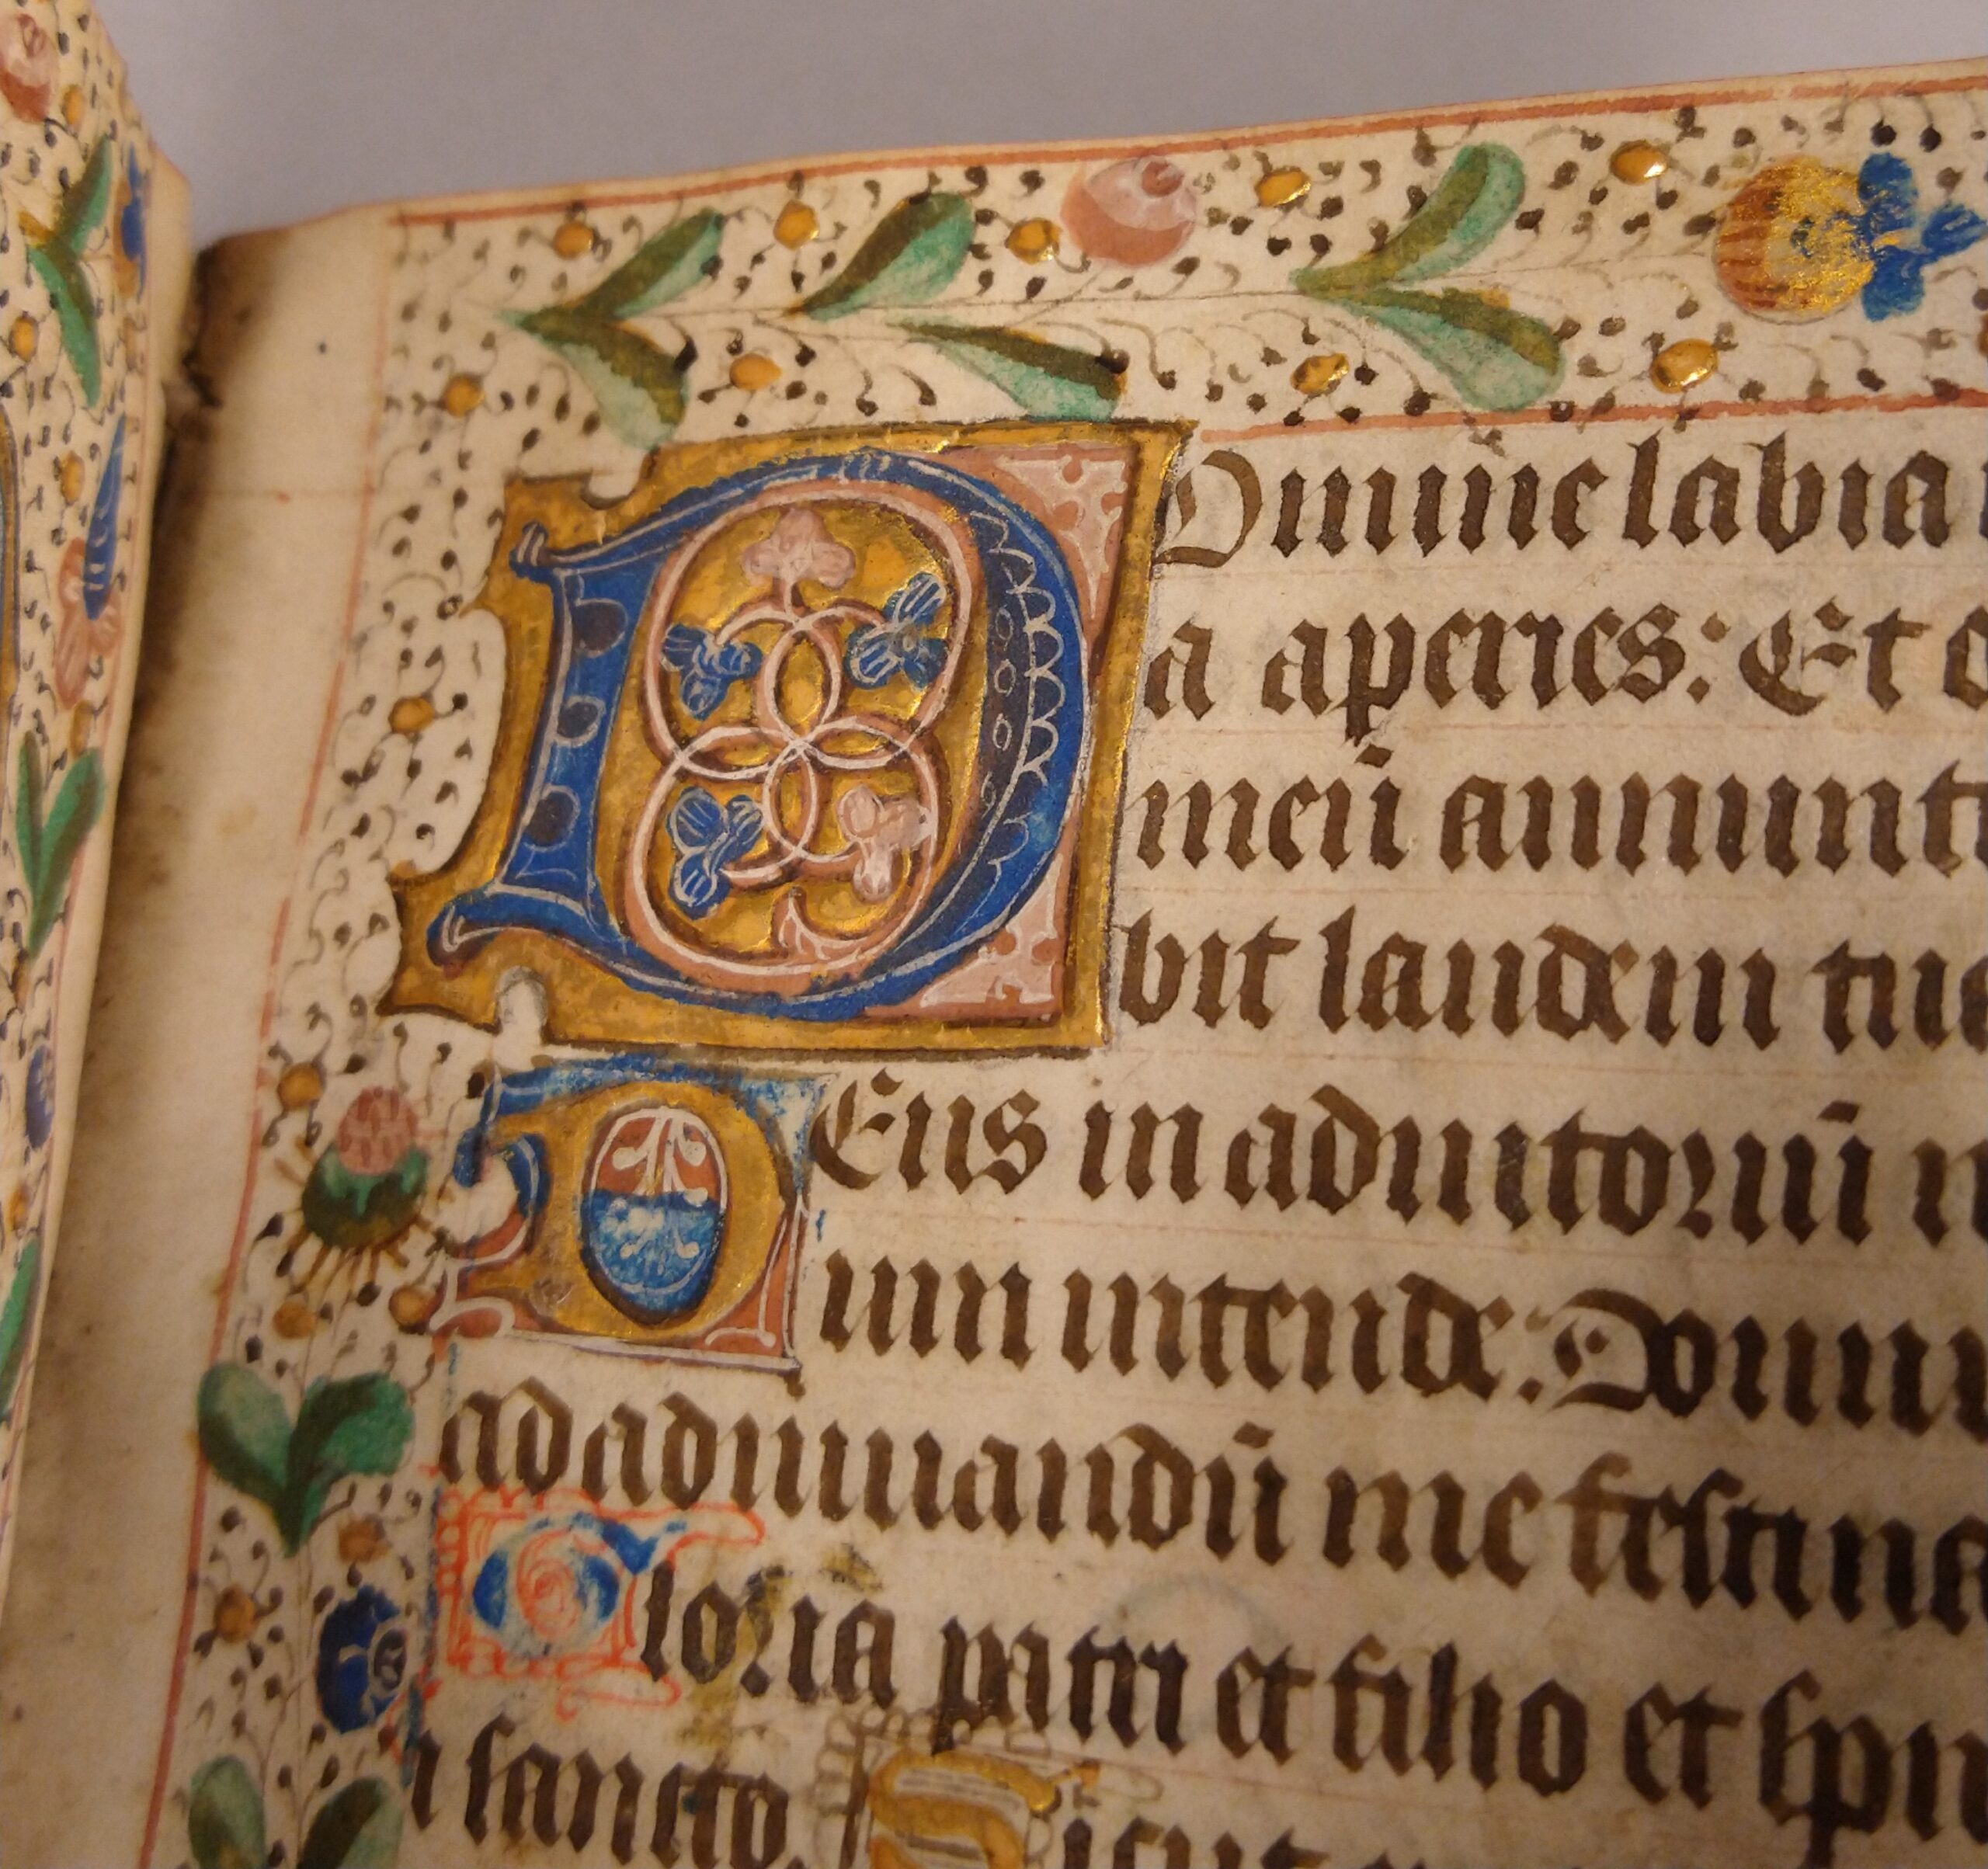 DOmine labia
a aperies: Et
meū annunt
bit laudem tua
DEus in adiutoriū
um intende: Domi
ad adiuuandū me festina
Gloria patri et filio et spu
i sancto. Sicut